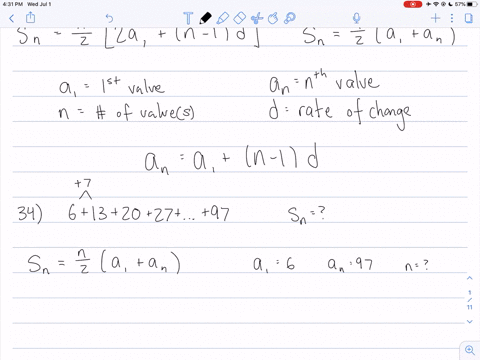 4:31 PM Wed Jul 1 57%
Sn = n/2 [2a₁ + (n-1) d] Sn = n/2 (a₁ + an)
a₁ = 1st value an = nth value
n = # of value(s) d = rate of change
an = a₁ + (n-1) d
+7
34) 6+13+20+27+...+97 Sn = ?
Sn = n/2 (a₁ + an) a₁ = 6 an = 97 n = ?
1
/
11